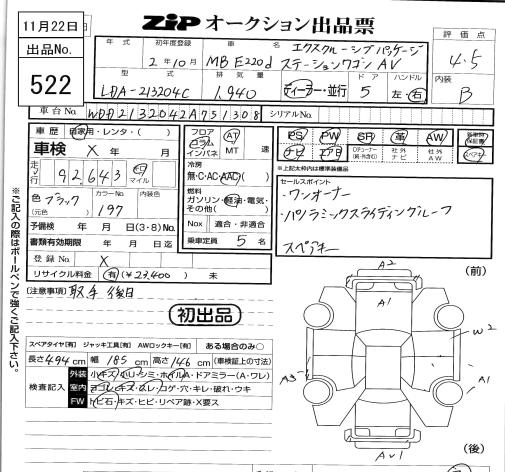 11月22日
出品No.
522
ZIP オークション出品票
評価点
4.5
内装
B
年式 初年度登録 車名
2年10月 MB E220d エクスクルーシブパッケージ
ステーションワゴン AV
型式 排気量 ドア ハンドル
LDA-213204C 1,940 ディーラー・並行 5 左・右
車台No. WDD2132042A751308 シリアルNo.
車歴 自家用・レンタ・( )
車検 X 年 月
走行 92,643 マイル
色 ブラック カラーNo. 197 内装色
(元色)
予備検 年 月 日(3・8)No.
書類有効期限 年 月 日迄
登録No. X
リサイクル料金 有(¥23,400)無
フロア コラム インパネ AT MT 速
冷房
無・C・AC・AAC
燃料
ガソリン・軽油・電気・その他( )
Nox 適合・非適合
乗車定員 5 名
PS PW SR 革 AW
ナビ 社外ナビ 社外AW スペアキー
※上記太枠内は標準装備品
セールスポイント
・ワンオーナー
・パノラミックスライディングルーフ
スペアキー
(注意事項) 取手後日
初出品
※ご記入の際はボールペンで強くご記入下さい。
スペアタイヤ[有] ジャッキ工具[有] AWロックキー[有] ある場合のみ○
長さ 494 cm 幅 185 cm 高さ 146 cm (車検証上の寸法)
検査記入
外装 小キズ・小凹・シミ・ホイルA・ドアミラー(A・ワレ)
室内 ヨゴレ・キズ・スレ・コゲ・穴・キレ・破れ・ウキ
FW トビ石・キズ・ヒビ・リペア跡・X要ス
(前)
A2
A1
W2
A3
A1
AW1
(後)